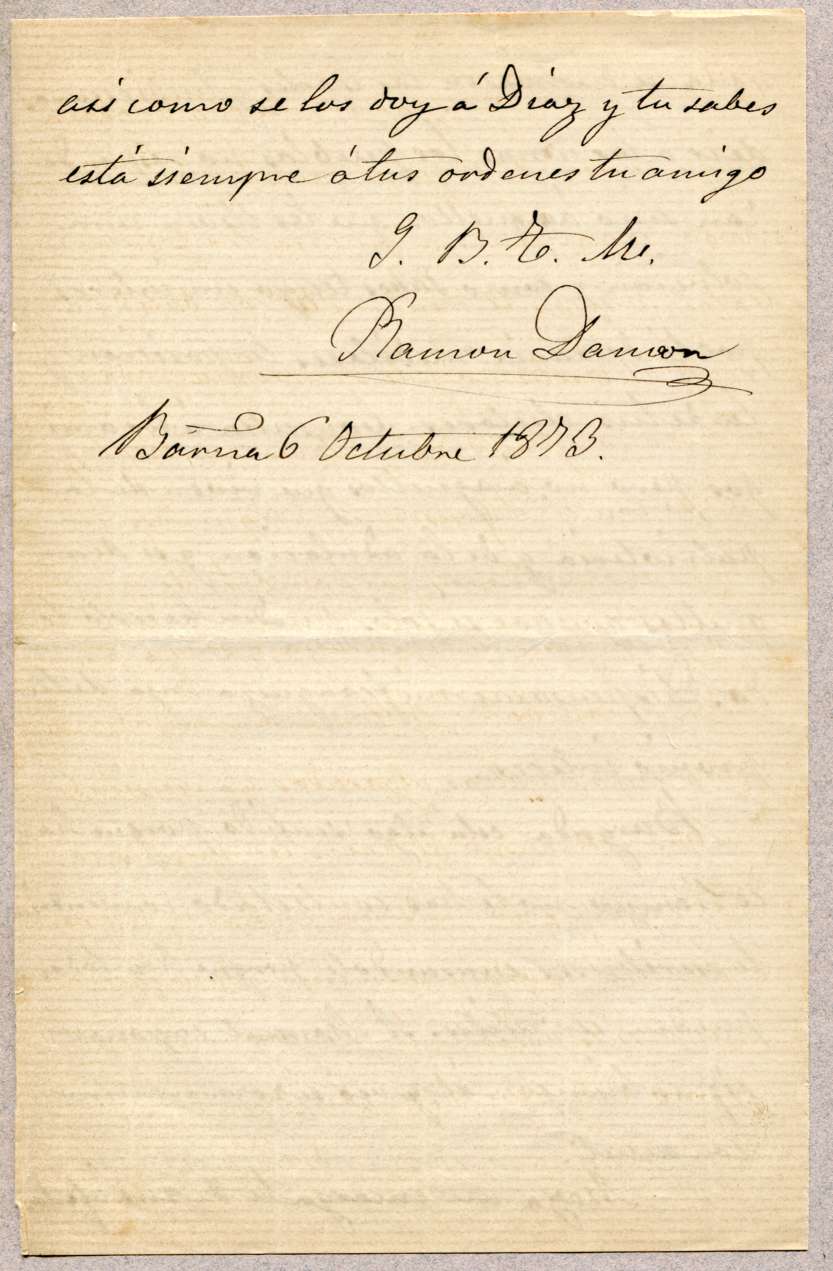 así como se los doy á Díaz y tu sabes
está siempre á tus ordenes tu amigo
Q. B. T. M.
Ramon
Barna 6 Octubre 1873.